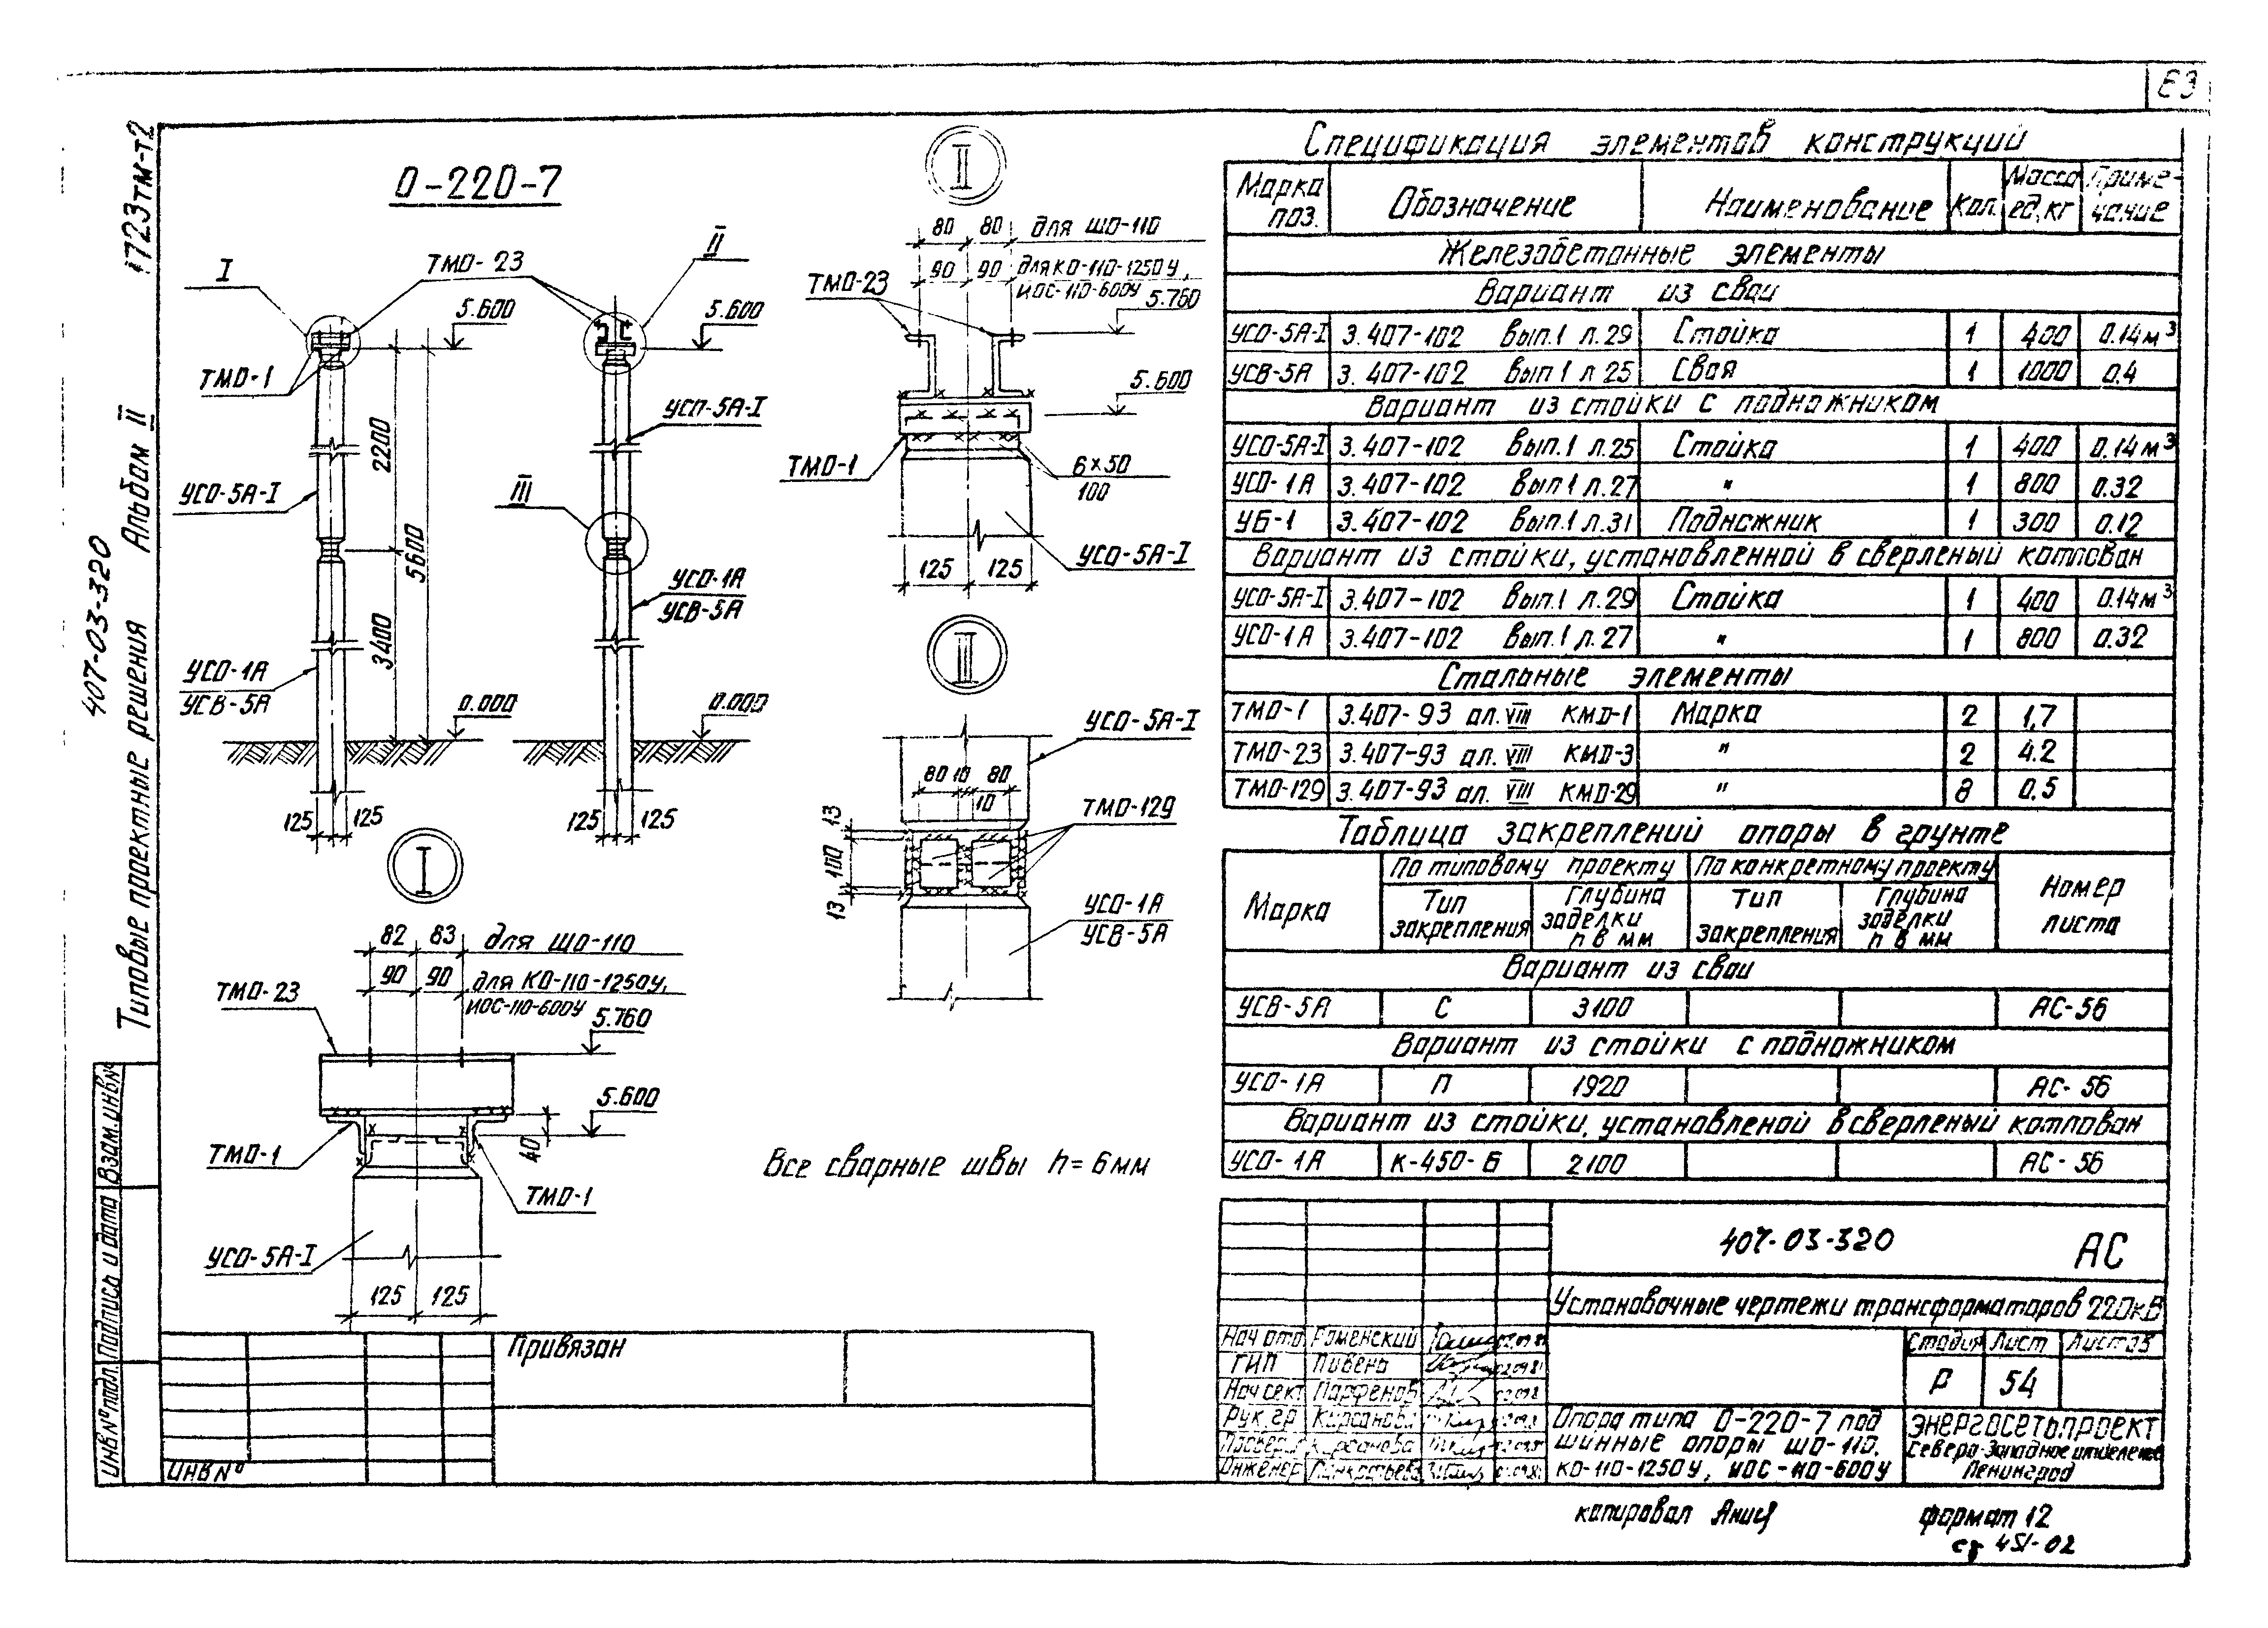 63
407-03-320
Типовые проектные решения Альбом II 1723тм-т2
О-220-7
I
ТМО-23
II
5.600
5.600
ТМО-1
УСО-5А-I
УСО-5А-I
III
2200
5600
3400
УСО-1А
УСВ-5А
УСО-1А
УСВ-5А
0.000
0.000
125 125
125 125
I
82 83 для ШО-110
90 90 для КО-110-1250У,
ИОС-110-600У
ТМО-23
5.760
5.600
40
ТМО-1
ТМО-1
УСО-5А-I
125 125
II
80 80 для ШО-110
90 90 для КО-110-1250У,
ИОС-110-600У
ТМО-23
5.760
5.600
ТМО-1
6×50
100
УСО-5А-I
125 125
III
УСО-5А-I
80 10 80
10
ТМО-129
13
100
13
УСО-1А
УСВ-5А
Все сварные швы h=6мм
Спецификация элементов конструкций
Марка поз. Обозначение Наименование Кол. Масса ед,кг Примечание
Железобетонные элементы
Вариант из сваи
УСО-5А-I 3.407-102 Вып.1 л.29 Стойка 1 400 0.14м³
УСВ-5А 3.407-102 Вып 1 л 25 Свая 1 1000 0.4
Вариант из стойки с подножником
УСО-5А-I 3.407-102 Вып.1 л.25 Стойка 1 400 0.14м³
УСО-1А 3.407-102 Вып.1 л.27 " 1 800 0.32
УБ-1 3.407-102 Вып.1 л.31 Подножник 1 300 0.12
Вариант из стойки, установленной в сверленый котлован
УСО-5А-I 3.407-102 Вып.1 л.29 Стойка 1 400 0.14м³
УСО-1А 3.407-102 Вып.1 л.27 " 1 800 0.32
Стальные элементы
ТМО-1 3.407-93 ал. VIII КМД-1 Марка 2 1,7
ТМО-23 3.407-93 ал. VIII КМД-3 " 2 4.2
ТМО-129 3.407-93 ал. VIII КМД-29 " 8 0,5
Таблица закреплений опоры в грунте
Марка По типовому проекту По конкретному проекту Номер листа
Тип закрепления Глубина заделки h в мм Тип закрепления Глубина заделки h в мм
Вариант из сваи
УСВ-5А С 3100 АС-56
Вариант из стойки с подножником
УСО-1А П 1920 АС-56
Вариант из стойки, установленой в сверленый котлован
УСО-1А К-450-Б 2100 АС-56
407-03-320 АС
Установочные чертежи трансформаторов 220кВ
Нач отд Роменский
ГИП Пивена
Нач сект Парфенов
Рук. гр Кирсанова
Провер. Кирсанова
Инженер
Стадия Лист Листов
Р 54
Опора типа О-220-7 под
шинные опоры ШО-110,
КО-110-1250У, ИОС-110-600У
ЭНЕРГОСЕТЬПРОЕКТ
Северо-Западное отделение
Ленинград
Привязан
ИНВ №
Инв № подл. Подпись и дата Взам. инв №
копировал
формат 12
451-02